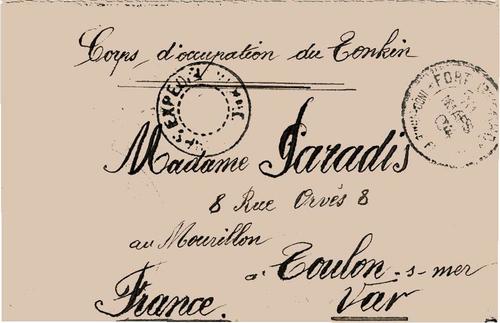 Corps d'occupation du Tonkin
Madame Paradis
8 Rue Orvés 8
au Mourillon
à Toulon-s-mer
France. Var